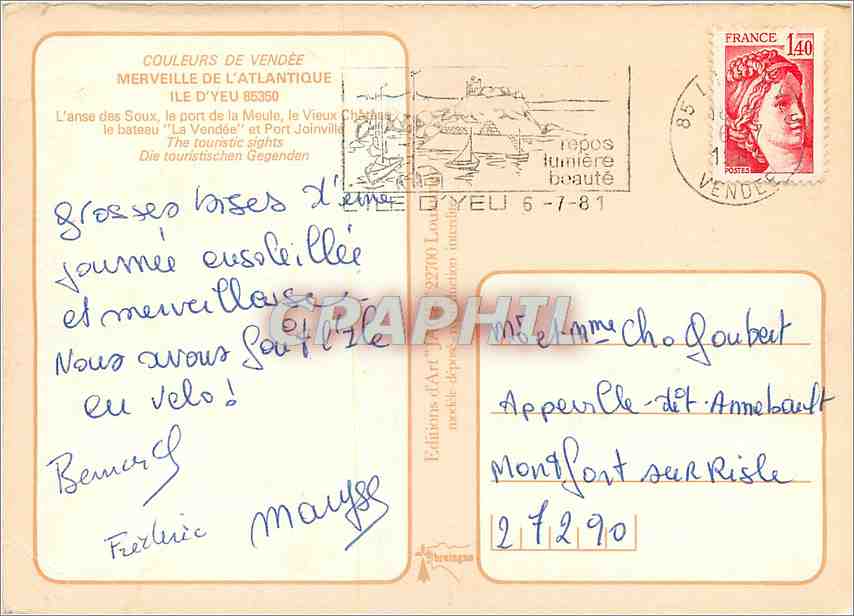 COULEURS DE VENDÉE
MERVEILLE DE L'ATLANTIQUE
ILE D'YEU 85350
L'anse des Soux, le port de la Meule, le Vieux Château,
le bateau "La Vendée" et Port Joinville
The touristic sights
Die touristischen Gegenden
Grosses bises d'une
journée ensoleillée
et merveilleuse.
Nous avons fait l'Ile
en velo !
Bernard
Frédéric
Maryse
FRANCE
1,40
POSTES
85
VENDEE
repos
lumière
beauté
ILE D'YEU 6-7-81
Editions d'Art "J 22700 Lou
modèle déposé interdite
CPAPHIL
Mr et Mme Cho Joubert
Appeville-dit-Annebault
Montfort sur Risle
27290
bretagne